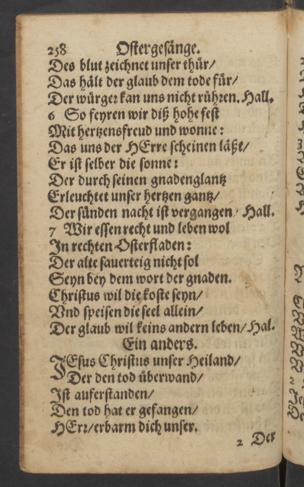 258 Ostergesänge.
Des blut zeichnet unser thür/
Das hält der glaub dem tode für/
Der würger kan uns nicht rühren. Hall.
6 So feyren wir diß hohe fest
Mit hertzensfreud und wonne:
Das uns der HErre scheinen läßt/
Er ist selber die sonne:
Der durch seinen gnadenglantz
Erleuchtet unser hertzen gantz/
Der sünden nacht ist vergangen/ Hall.
7 Wir essen recht und leben wol
In rechten Osterfladen:
Der alte sauerteig nicht sol
Seyn bey dem wort der gnaden.
Christus wil die koste seyn/
Und speisen die seel allein/
Der glaub wil keins andern leben/ Hal.
Ein anders.
JEsus Christus unser Heiland/
Der den tod überwand/
Ist auferstanden/
Den tod hat er gefangen/
HErr/erbarm dich unser.
2 Der